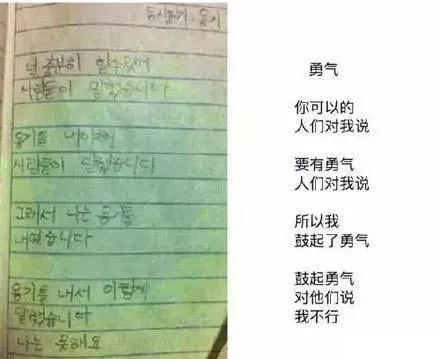 동시짓기 : 용기
넌 충분히 할수있어
사람들이 말했습니다
용기를 내야해
사람들이 말했습니다
그래서 나는 용기를
내었습니다
용기를 내서 이렇게
말했습니다
나는 못해요
勇气
你可以的
人们对我说
要有勇气
人们对我说
所以我
鼓起了勇气
鼓起勇气
对他们说
我不行